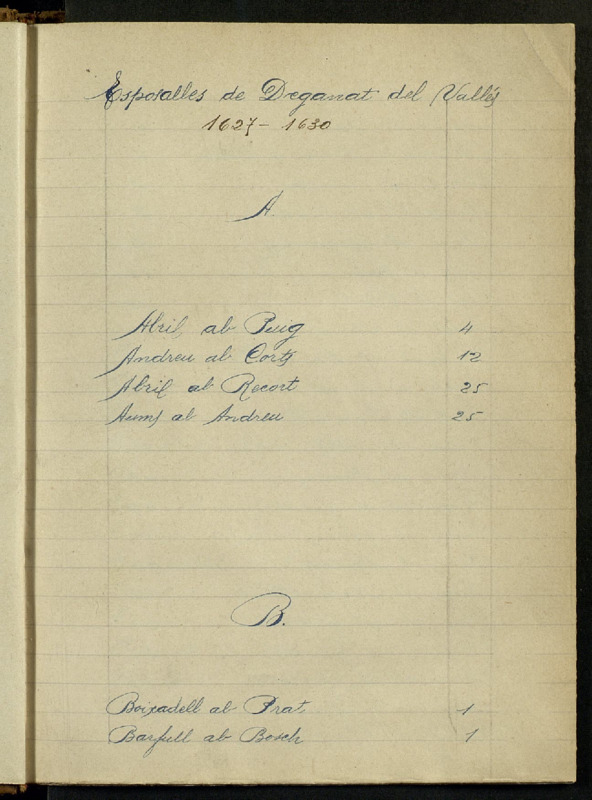 Esposalles de Deganat del Vallés
1627 - 1630
A.
Abril ab Puig 4
Andreu ab Corts 12
Abril ab Recort 25
ab Andreu 25
B.
Boixadell ab Prat 1
Barfull ab Bosch 1